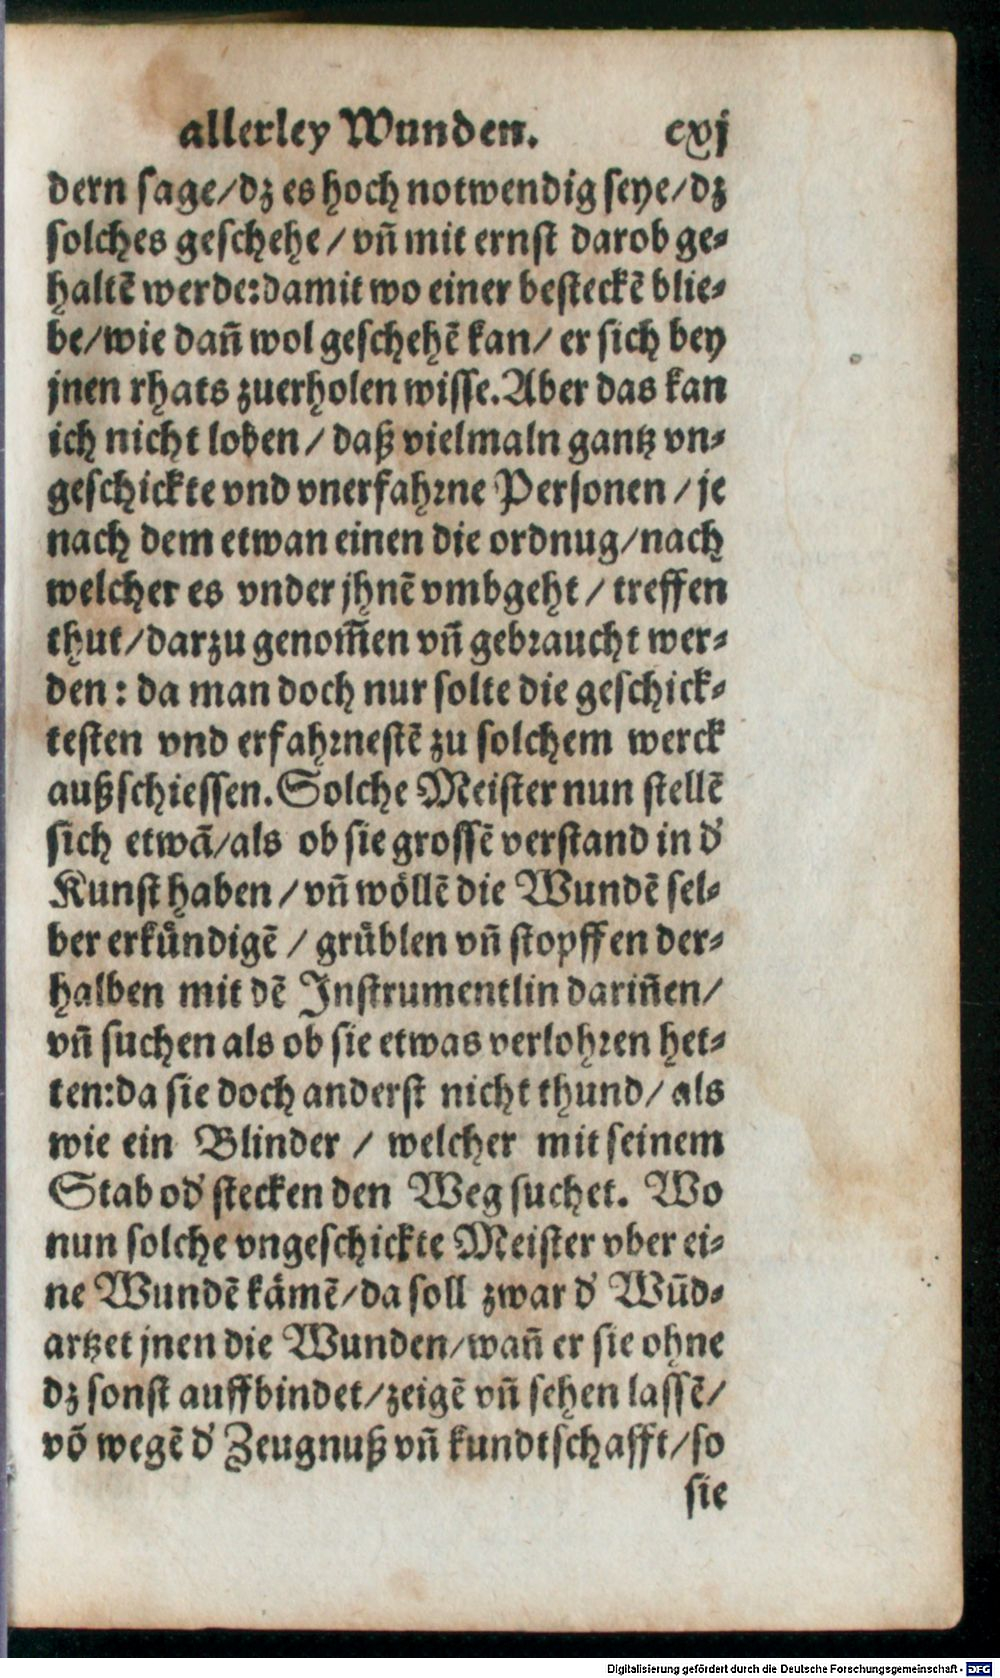 allerley Wunden. cxj
dern sage/dz es hoch notwendig seye/dz
solches geschehe / vñ mit ernst darob ge-
haltẽ werde:damit wo einer besteckẽ blie-
be/wie dañ wol geschehẽ kan/ er sich bey
jnen rhats zuerholen wisse.Aber das kan
ich nicht loben / daß vielmaln gantz vn-
geschickte vnd vnerfahrne Personen / je
nach dem etwan einen die ordnug/nach
welcher es vnder jhnẽ vmbgeht / treffen
thut/darzu genom̃en vñ gebraucht wer-
den : da man doch nur solte die geschick-
testen vnd erfahrnestẽ zu solchem werck
außschiessen.Solche Meister nun stellẽ
sich etwã/als ob sie grossẽ verstand in d'
Kunst haben / vñ wöllẽ die Wundẽ sel-
ber erkündigẽ / grüblen vñ stopffen der-
halben mit dẽ Instrumentlin dariñen/
vñ suchen als ob sie etwas verlohren het-
ten:da sie doch anderst nicht thund/ als
wie ein Blinder / welcher mit seinem
Stab od' stecken den Weg suchet. Wo
nun solche vngeschickte Meister vber ei-
ne Wundẽ kämẽ/da soll zwar d' Wũd-
artzet jnen die Wunden/wañ er sie ohne
dz sonst auffbindet/zeigẽ vñ sehen lassẽ/
võ wegẽ d' Zeugnuß vñ kundtschafft/so
sie
Digitalisierung gefördert durch die Deutsche Forschungsgemeinschaft - DFG